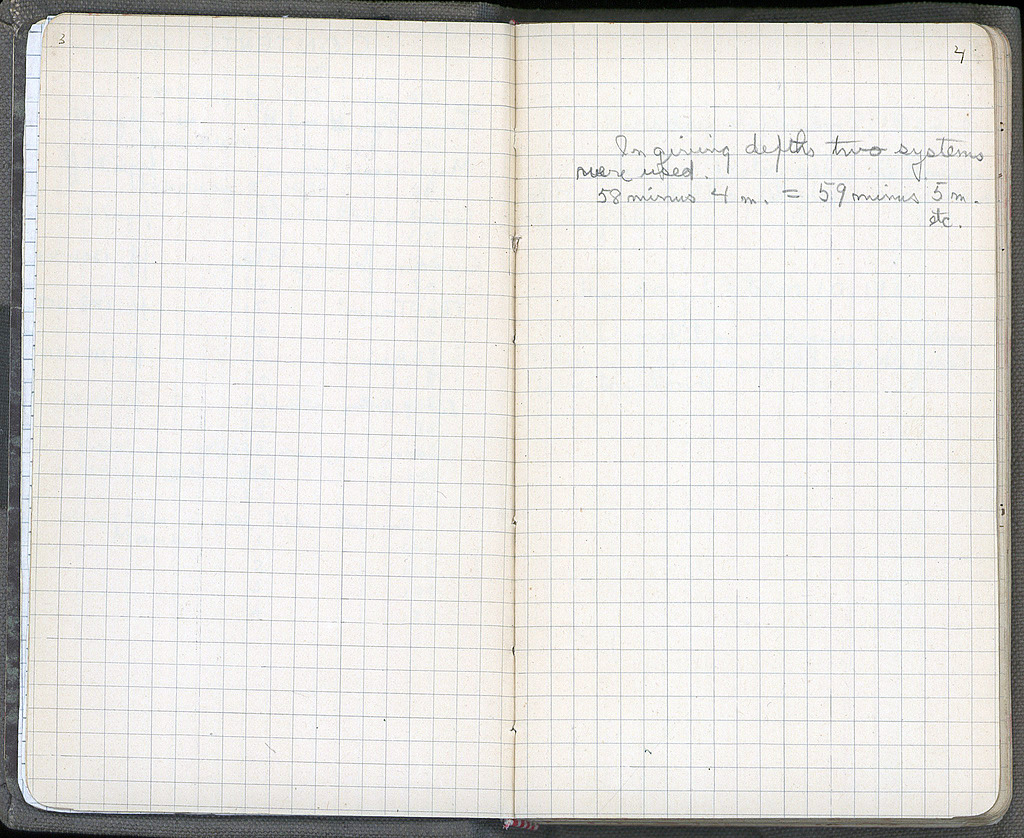 3
4
In giving depths two systems
were used.
58 minus 4 m. = 59 minus 5 m.
etc.